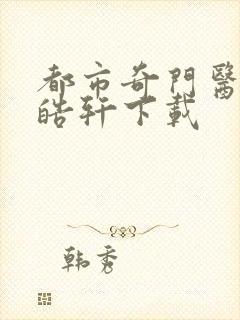 都市奇門醫
皓軒下載
韩秀